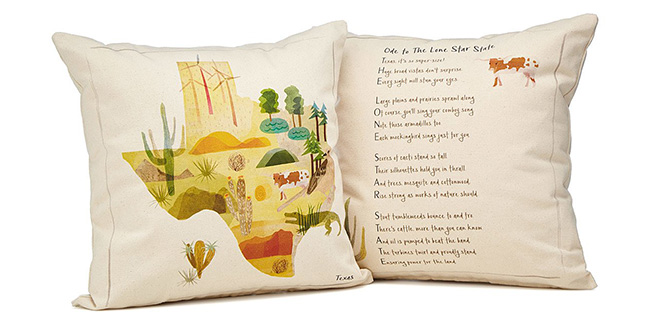 Texas
Ode to The Lone Star State
Texas, it's so super-size!
Huge broad vistas don't surprise
Every sight will stun your eyes
Large plains and prairies sprawl along
Of course, you'll sing your cowboy song
Note those armadillos too
Each mockingbird sings just for you
Scores of cacti stand so tall
Their silhouettes hold you in thrall
And trees, mesquite and cottonwood,
Rise strong as works of nature should
Stout tumbleweeds bounce to and fro
There's cattle, more than you can know
And oil is pumped to beat the band
The turbines twirl and proudly stand
Ensuring power for the land